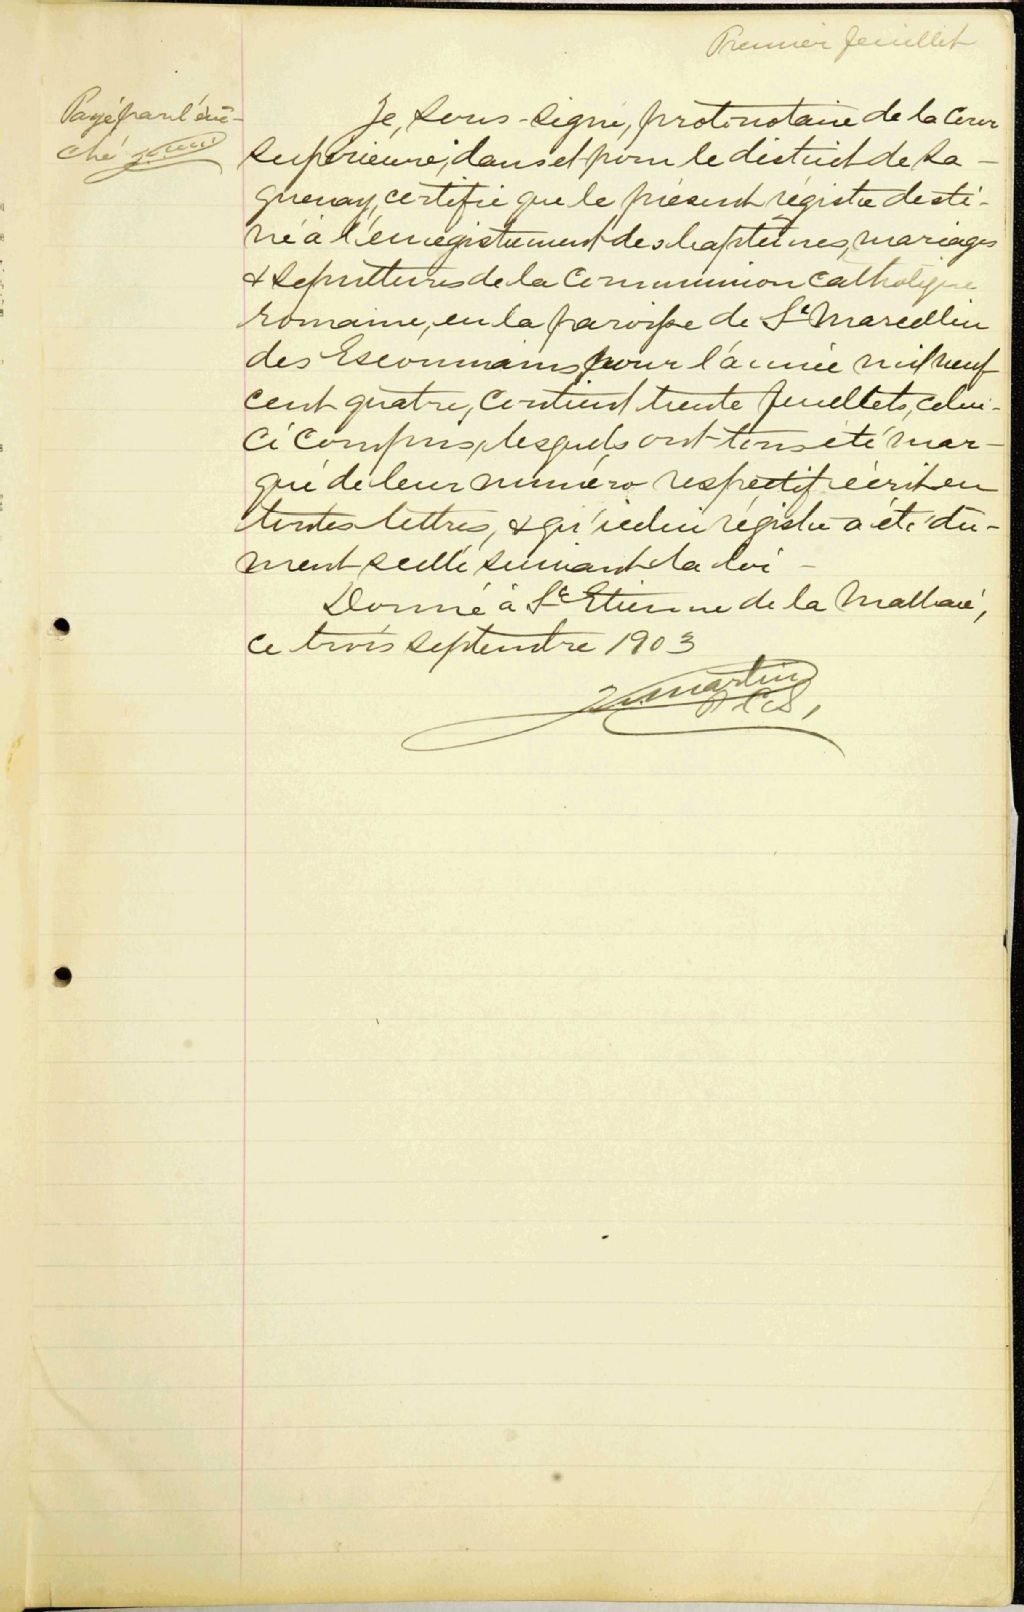 Premier feuillet
Payé par l'évê-
ché
Je, sous-signé, protonotaire de la Cour
Supérieure, dans et pour le district de Sa-
guenay, certifie que le présent régistre desti-
né à l'enregistrement des baptêmes, mariages
& sepultures de la Communion Catholique
romaine, en la paroisse de St Marcellin
des Escoumains pour l'année mil neuf
cent quatre, contient trente feuillets, celui-
ci compris, lesquels ont tous été mar-
qué de leur numéro respectif écrit en
toutes lettres, & qu'icelui régistre a été du-
ment scellé suivant la loi -
Donné à St Etienne de la Malbaie,
ce trois septembre 1903
Martin
P.C.S.